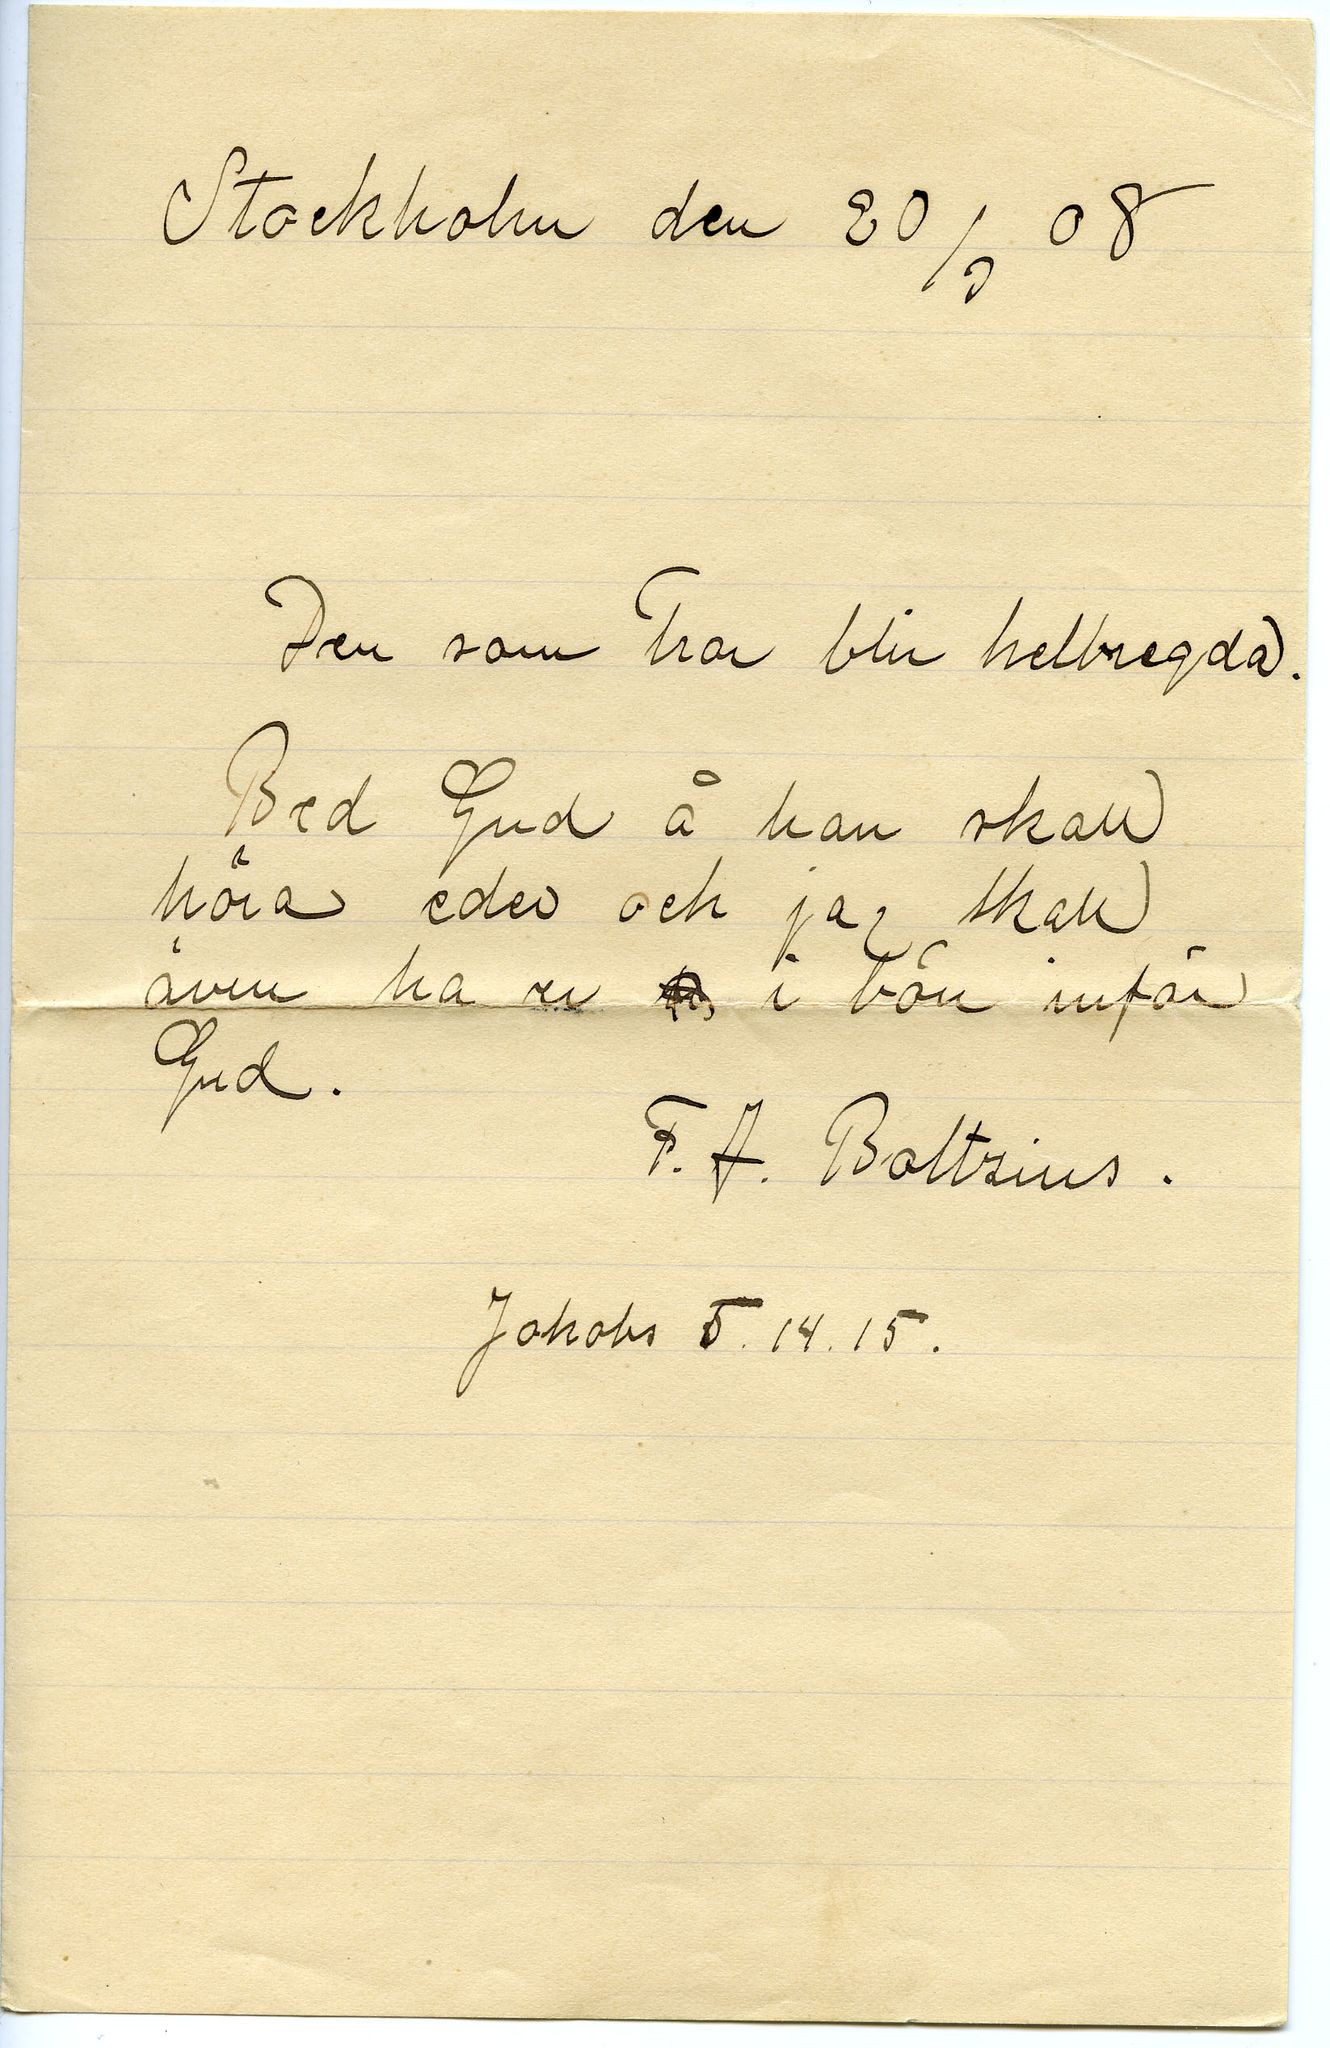 Stockholm den 20/9 08
Den som tror blir helbregda.
Bed Gud å han skall
höra eder och jag skall
även ha er i bön inför
Gud.
F. A. Boltzius.
Jakobs 5. 14. 15.